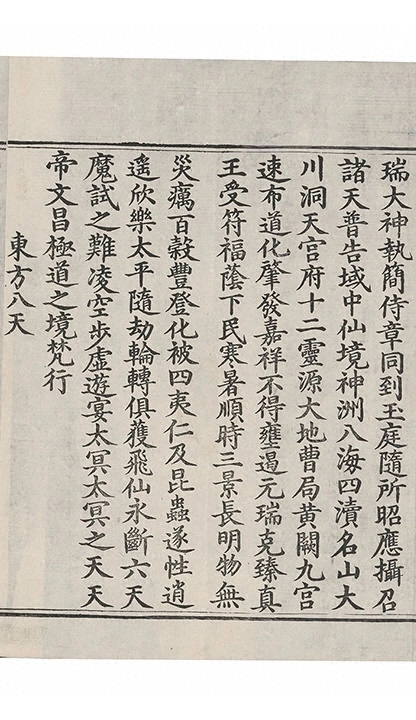 瑞大神執簡侍章同到玉庭隨所昭應攝召
諸天普告域中仙境神洲八海四瀆名山大
川洞天宮府十二靈源大地曹局黄闕九宮
速布道化肇發嘉祥不得壅遏元瑞克臻真
王受符福蔭下民寒暑順時三景長明物無
災癘百穀豐登化被四夷仁及昆蟲遂性逍
遙欣樂太平隨劫輪轉俱獲飛仙永斷六天
魔試之難凌空步虛遊宴太冥太冥之天天
帝文昌極道之境梵行
東方八天